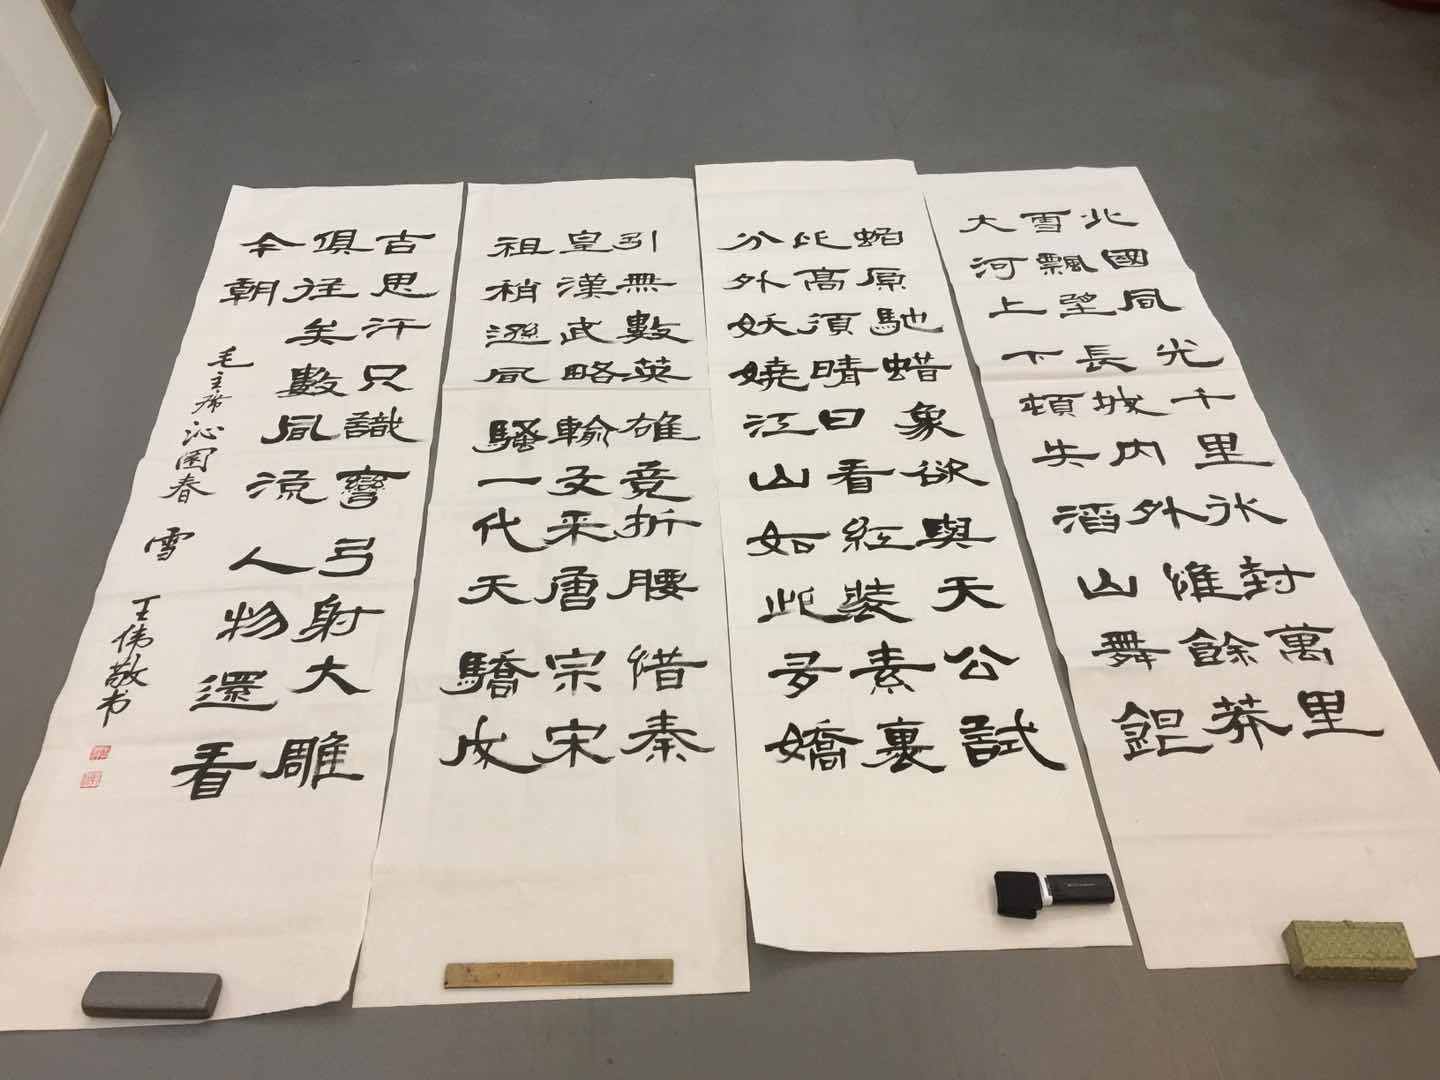 北國風光千里冰封萬里
雪飄望長城內外惟餘莽
大河上下頓失滔山舞銀
蛇原馳蜡象欲與天公試
比高須晴日看紅裝素裹
分外妖嬈江山如此多嬌
引無數英雄竞折腰惜秦
皇漢武略輸文采唐宗宋
祖稍遜風騷一代天驕成
吉思汗只識彎弓射大雕
俱往矣數風流人物還看
今朝
毛主席沁園春 雪 王伟敬书